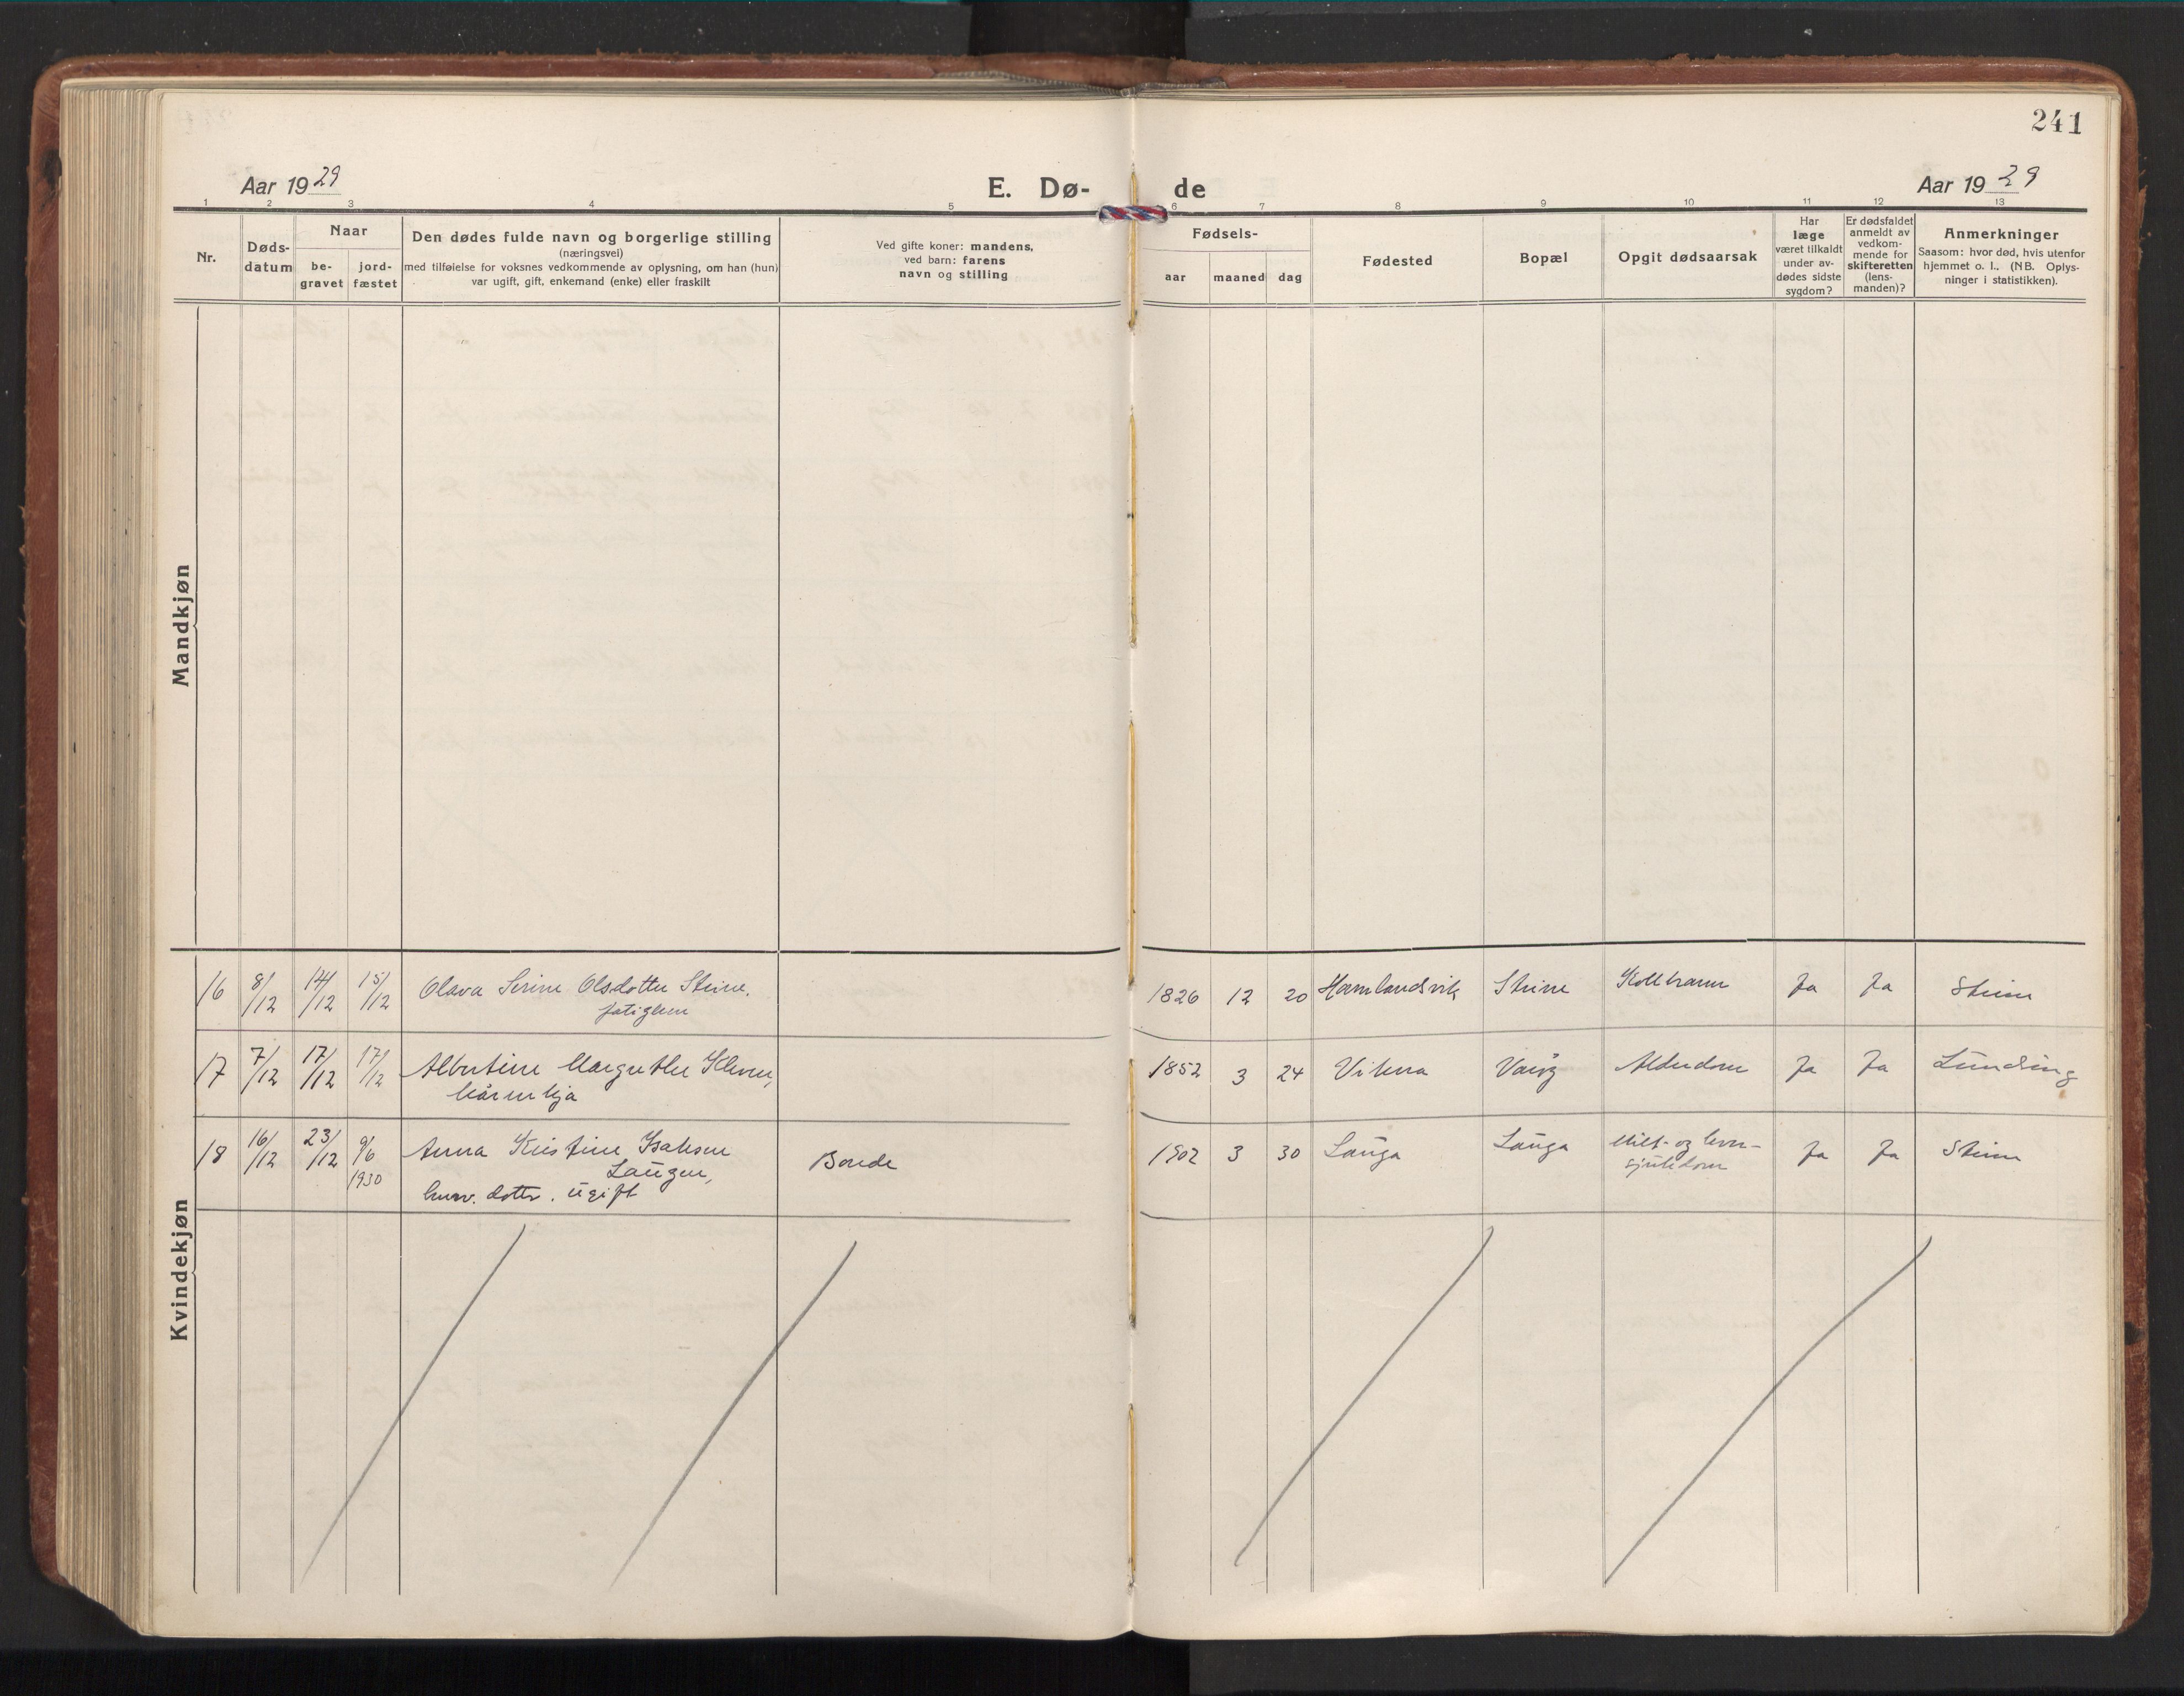 241
Aar 1929
E. Dø-
de
Aar 1929
1 2 3 4 5 6 7 8 9 10 11 12 13
Nr.
Døds-
datum
Naar
be-
gravet
jord-
fæstet
Den dødes fulde navn og borgerlige stilling
(næringsvei)
med tilføielse for voksnes vedkommende av oplysning, om han (hun)
var ugift, gift, enkemand (enke) eller fraskilt
Ved gifte koner: mandens,
ved barn: farens
navn og stilling
Fødsels-
aar maaned dag
Fødested
Bopæl
Opgit dødsaarsak
Har
læge
været tilkaldt
under av-
dødes sidste
sygdom?
Er dødsfaldet
anmeldt av
vedkom-
mende for
skifteretten
(lens-
manden)?
Anmerkninger
Saasom: hvor død, hvis utenfor
hjemmet o. l.. (NB. Oplys-
ninger i statistikken).
Mandkjøn
Kvindekjøn
16 8/12 14/12 15/12 Olava Serine Olsdotter Steine. 1826 12 20 Hamlandsvik Steine Koldbrann Ja Ja Steine
fatiglem
17 7/12 17/12 17/12 Albertine Margrethe Kleven, 1852 3 24 Vikna Varøy Alderdom Ja Ja Lundring
18 16/12 23/12 9/6 1930 Anna Kristine Isaksen Bonde 1902 3 30 Lauga Lauga Milt- og lever- Ja Ja Steine
Laugen, sjukdom
dotter. ugift